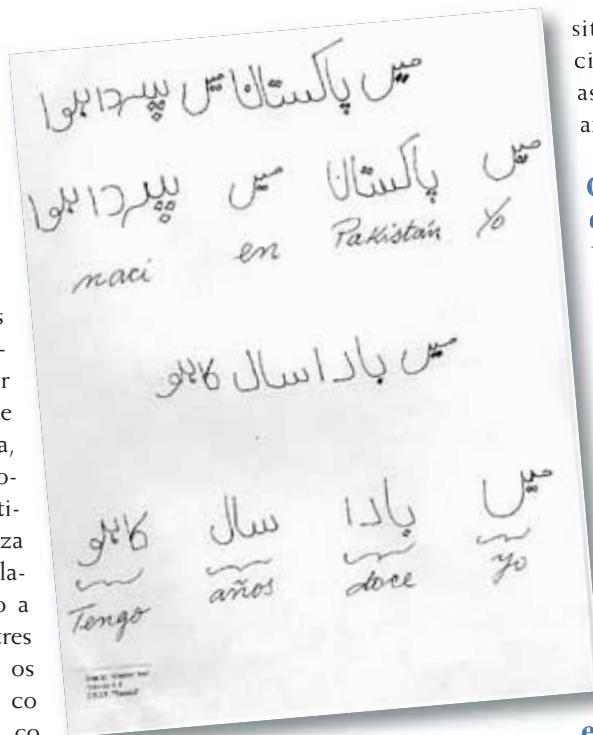 میں پاکستان میں پیدا ہوا
میں پاکستان میں پیدا ہوا
Yo Pakistán en naci
میں بادا سال کا ہو
میں بادا سال کا ہو
yo doce años Tengo
s
-
r
e
a,
o-
ti-
za
la-
o a
tres
os
co
co
sit
ci
as